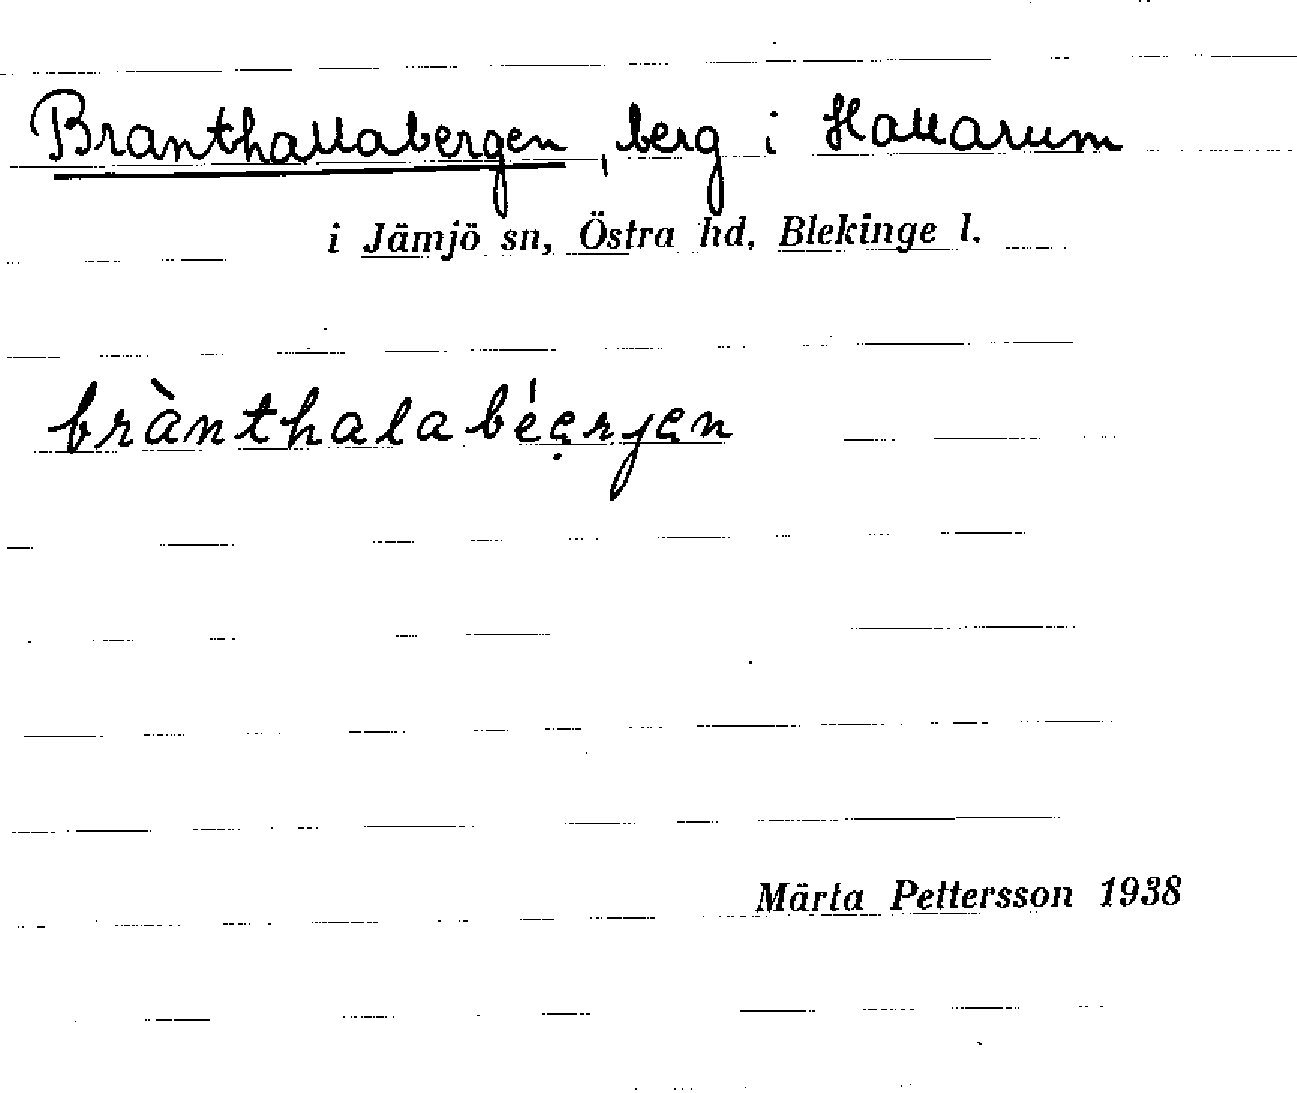 Branthallabergen, berg i Hallarum
i Jämjö sn, Östra hd, Blekinge l.
brànthalabéẹrjen
Märta Pettersson 1938